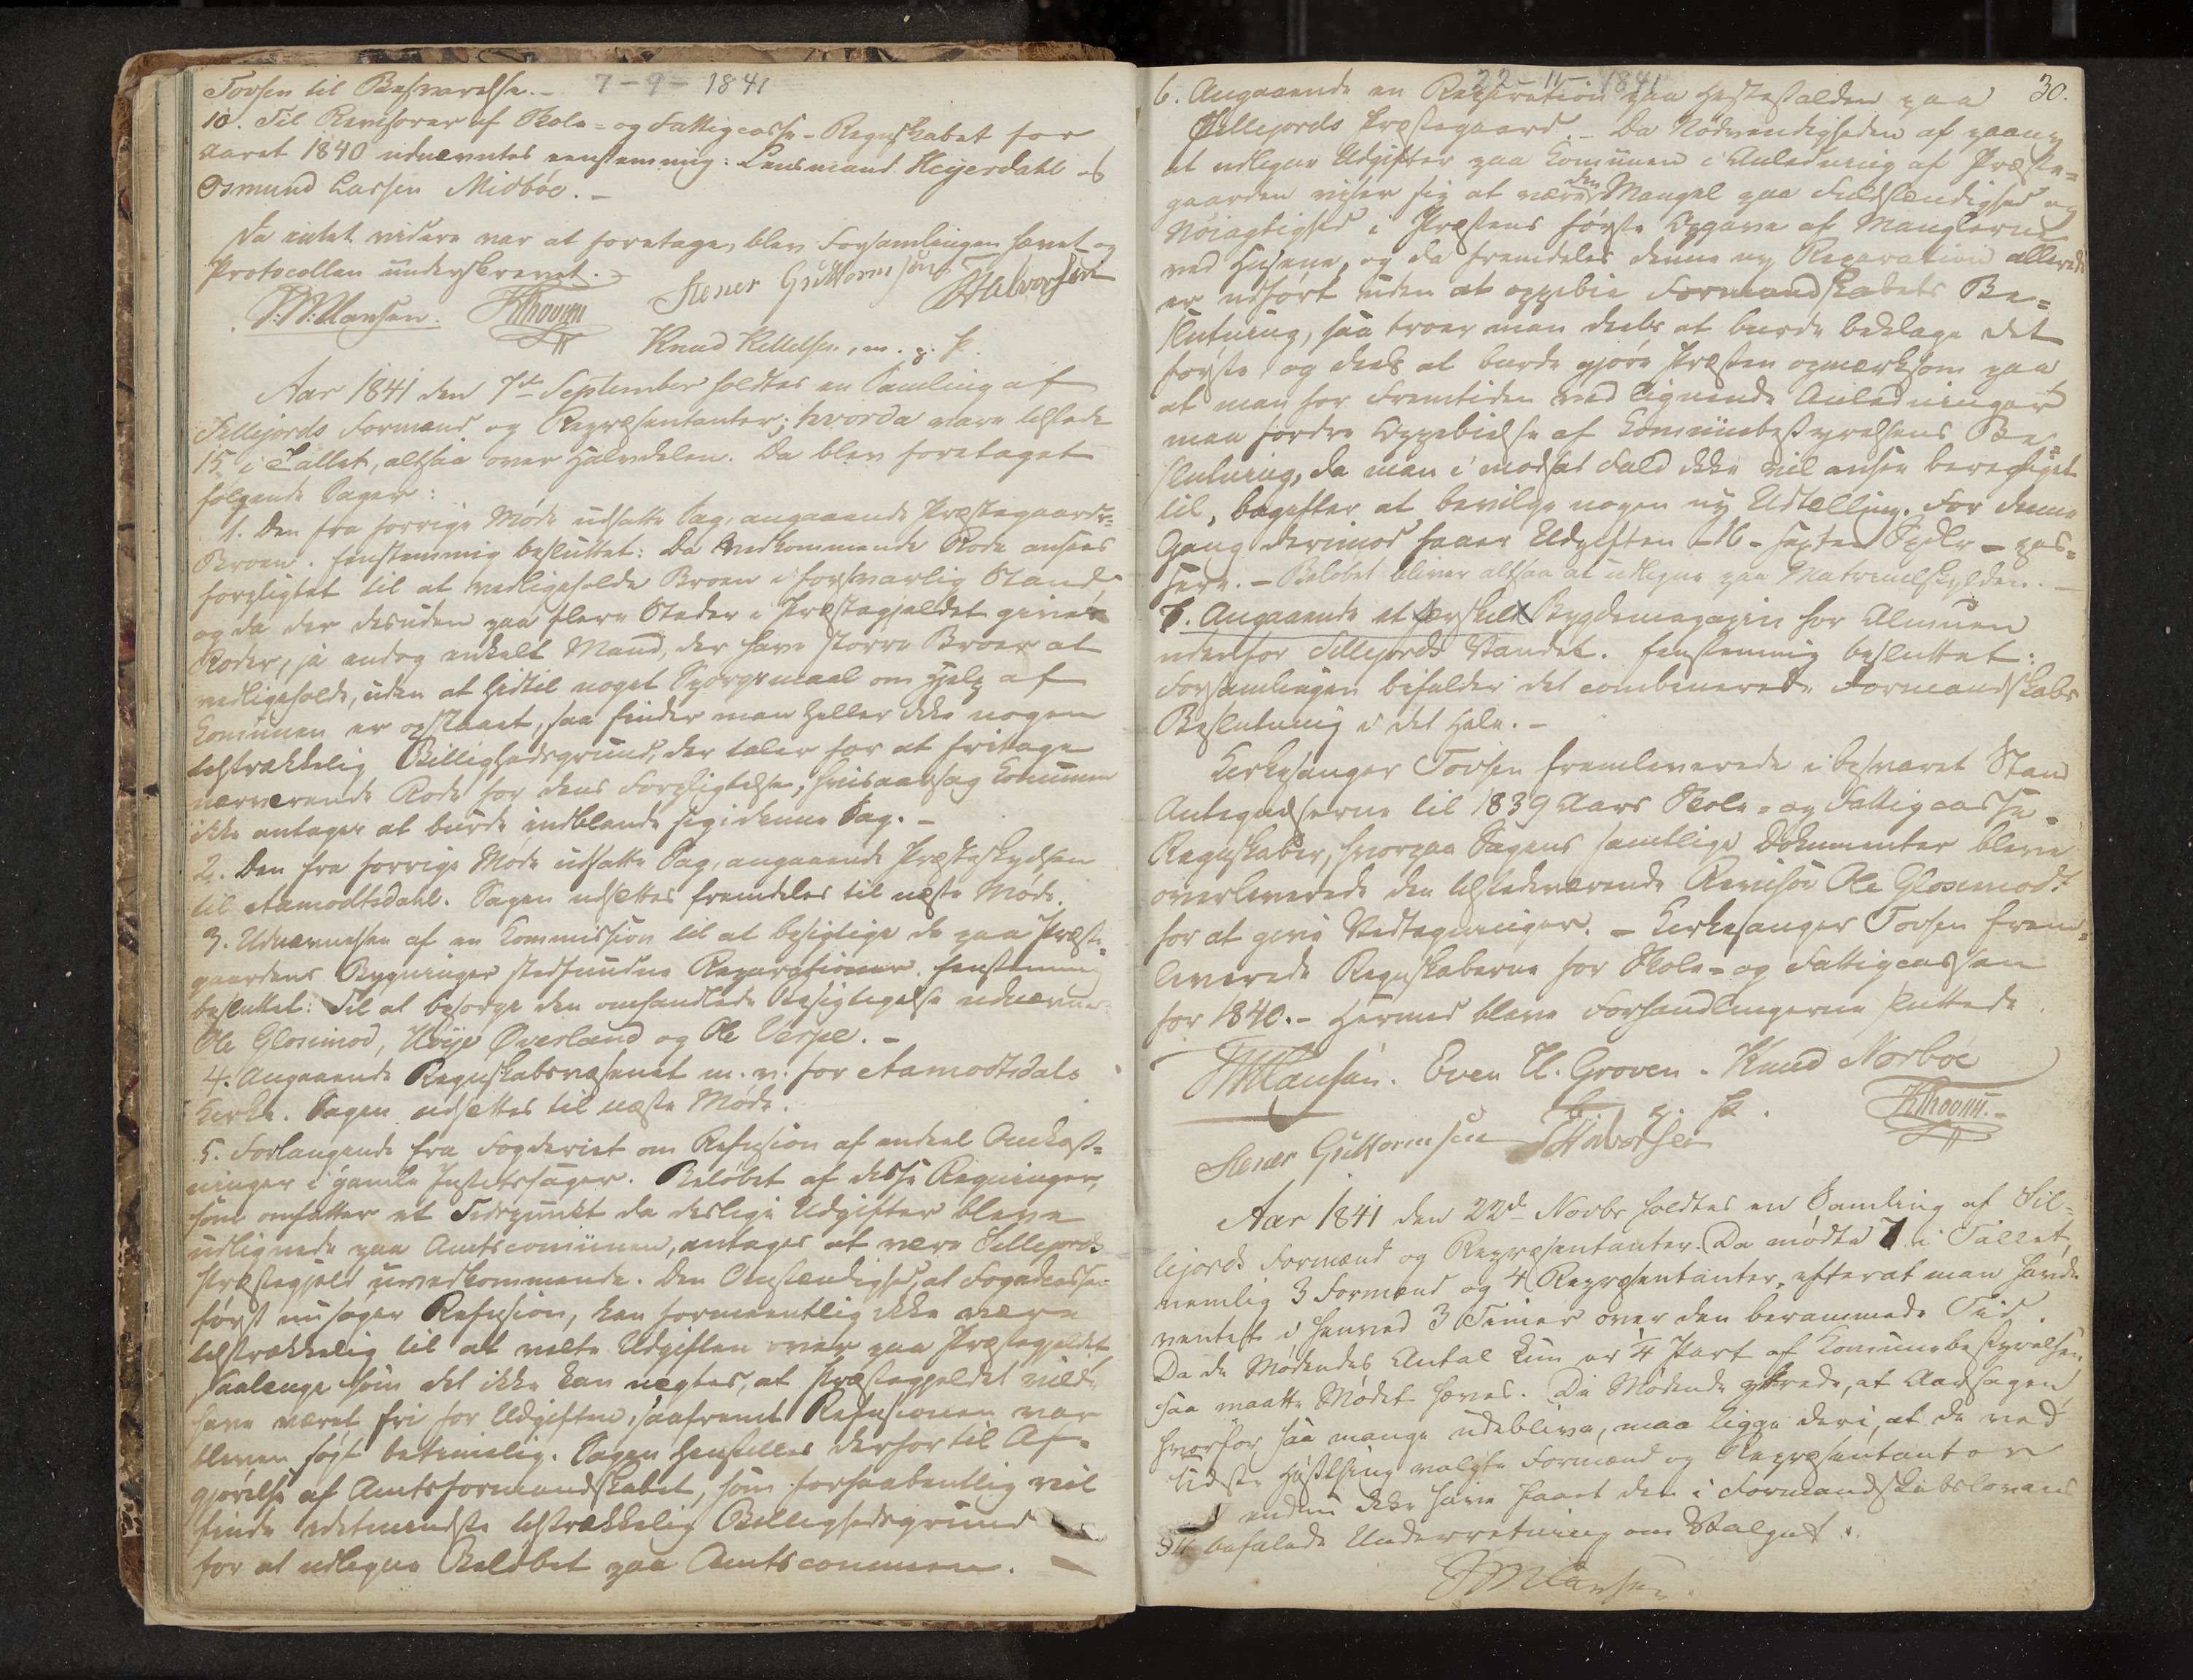 Tovsen til Besvarelse. – 7-9-1841
10. Til Revisorer af Skole- og Fattigcasse-Regnskabet for
Aaret 1840 udnævntes eenstemmig: Lensmand Heyerdahl og
Osmund Larssen Midbøe. –
Da intet videre var at foretage, blev Forsamlingen hævet og
Protocollen underskrevet. –
Stener Guttormsøn HHalvorsen
J: M: Clausen.
Knud Kittelsen, m. p. P.
Aar 1841 den 7de September holdtes en Samling af
Sillejords Formænd og Repræsentanter; hvorda vare tilstede
15 i Tallet, altsaa over Halvdelen. Da blev foretaget
følgende Sager:
1. Den fra forrige Møde udsatte Sag, angaaende Præstegaards-
Broen. Eenstemmig besluttet: Da vedkommende Rode ansees
forpligtet til at vedligeholde Broen i forsvarlig Stand,
og da der desuden paa flere Steder i Præstegjældet gives
Roder, ja endog enkelt Mand, der have større Broer at
vedligeholde, uden at hidtil noget Spørgsmaal om Hjelp af
Communen er opstaaet, saa finder man heller ikke nogen
tilstrækkelig Billighedsgrund, der taler for at fritage
nærværende Rode for dens Forpligtelse, hvisaarsag Communen
ikke antager at burde indblande sig i denne Sag. –
2. Den fra forrige Møde udsatte Sag, angaaende Præsteskydsen
til Aamodtsdahl. Sagen udsættes fremdeles til næste Møde.
3. Udnævnelsen af en Kommission til at besigtige de paa Præste-
gaardens Bygninger stedfundne Reparationer. Eenstemmig
besluttet: Til at besørge den omhandlede Besigtigelse udnævnes
Ole Glosimod, Høye Øverland og Ole Verpe. –
4. Angaaende Regnskabsvæsenet m. v. for Aamodtsdals
Kirke. Sagen udsættes til næste Møde.
5. Forlangende fra Fogderiet om Refusion af endeel Omkost-
ninger i gamle Justitssager. Beløbet af disse Regninger,
som omfatter et Tidspunkt da deslige Udgifter bleve
udlignede paa Amtscommunen, antages at være Sillejords
Præstegjeld uvedkommende. Den Omstændighed, at Fogedcassen
først nu søger Refusion, kan formeentlig ikke være
tilstrækkelig til at vælte Udgiften over paa Præstegjeldet
saalænge som det ikke kan nægtes, at Præstegjeldet vilde
have været fri for Udgiften, saafremt Refusionen var
bleven søgt betimelig. Sagen henstilles derfor til Af-
gjørelse af Amtsformandskabet, som forhaabentlig vil
finde idetmindste tilstrækkelig Billighedsgrund
for at udligne Beløbet paa Amtscommunen. –
22-11-1841 30.
6. Angaaende en Reparation paa Hestestalden paa
Sillejords Præstegaard. – Da Nødvendigheden af paany
at udligne Udgifter paa Communen i Anledning af Præste-
gaarden viser sig at være den Mangel paa Fuldstændighed og
Nøiagtighed i Præstens første Opgave af Manglerne
ved Husene, og da fremdeles denne ny Reparation allerede
er udført uden at oppebie Formandskabets Be-
slutning, saa troer man deels at burde beklage det
første og deels at burde gjøre Præsten opmærksom paa,
at man for Fremtiden ved lignende Anledninger
maa fordre Oppebielse af Communebestyrelsens Be-
slutning, da man i modsat Fald ikke vil ansee berettiget
til, bagefter at bevilge nogen ny Udtælling. For denne
Gang derimod faaer Udgiften – 16 – sexten Spdlr – pas-
sere. – Beløbet bliver altsaa at udligne paa Matriculskylden. –
7. Angaaende et særskilt Bygdemagazin for Almuen
udenfor Sillejords Vandet. Eenstemmig besluttet:
Forsamlingen bifalder det combinerede Formandskabs
Beslutning i det Hele. –
Kirkesanger Tovsen fremleverede i besvaret Stand
Antegnelserne til 1839 Aars Skole- og Fattigcasse-
Regnskaber, hvorpaa Sagens samtlige Dokumenter bleve
overleverede den tilstedeværende Revisor Ole Glosimodt
for at give Vedtegninger. – Kirkesanger Tovsen frem-
leverede Regnskaberne for Skole- og Fattigcassen
for 1840. – Hermed bleve Forhandlingerne sluttede.
JMClausen. Even H. Groven. Knud Norbøe
p. P.
Stener Guttormsen HHalvorsen
Aar 1841 den 22de Novbr holdtes en Samling af Sil-
lejords Formænd og Repræsentanter. Da mødte 7 i Tallet,
nemlig 3 Formænd og 4 Repræsentanter, efterat man havde
ventet i henved 3 Timer over den berammede Tid.
Da de Mødendes Antal kun er 1/4 Part af Communebestyrelsen,
saa maatte Mødet hæves. De Mødende yttrede, at Aarsagen,
hvorfor saa mange udeblive, maa ligge deri, at de ved
sidste Høstthing valgte Formænd og Repræsentanter
endnu ikke have faaet den i Formandskabslovens
§ befalede Underretning om Valget.
JMClausen.